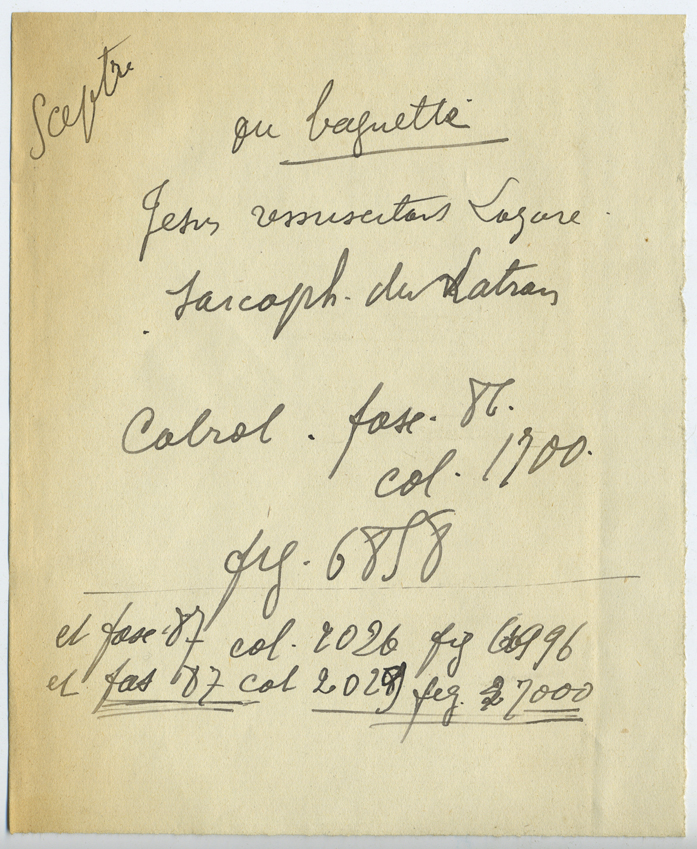 Sceptre
ou baguette
Jesus ressuscitant Lazare.
Sarcoph. du Latran
Cabrol. fasc. 86.
col. 1700.
fig. 6858
et fasc. 87 col. 2026 fig 6996
et fas 87 col 2029 feg. 7000